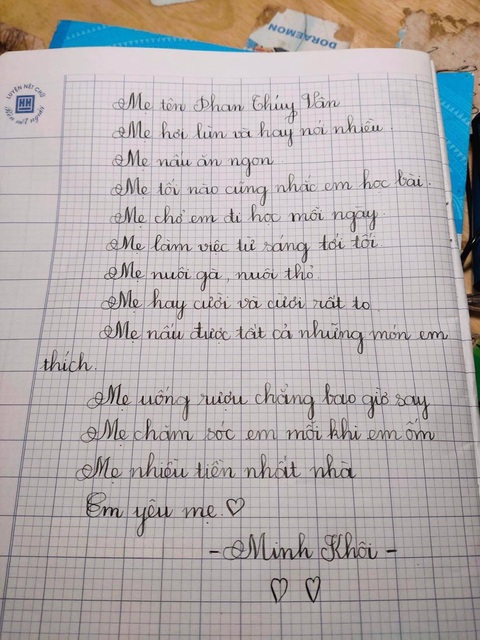 DORAEMON
LUYỆN NÉT CHỮ
HH
Rèn nết người
Mẹ tên Phan Thúy Vân
Mẹ hơi lùn và hay nói nhiều.
Mẹ nấu ăn ngon
Mẹ tối nào cũng nhắc em học bài.
Mẹ chở em đi học mỗi ngày.
Mẹ làm việc từ sáng tới tối
Mẹ nuôi gà, nuôi thỏ.
Mẹ hay cười và cười rất to
Mẹ nấu được tất cả những món em
thích.
Mẹ uống rượu chẳng bao giờ say
Mẹ chăm sóc em mỗi khi em ốm
Mẹ nhiều tiền nhất nhà
Em yêu mẹ ♡
- Minh Khôi -
♡ ♡